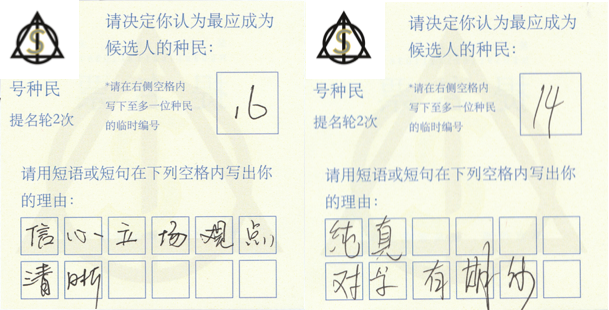 S
请决定你认为最应成为
候选人的种民：
号种民
提名轮2次
*请在右侧空格内
写下至多一位种民
的临时编号
16
请用短语或短句在下列空格内写出你
的理由：
信心立场观点
清晰
S
请决定你认为最应成为
候选人的种民：
号种民
提名轮2次
*请在右侧空格内
写下至多一位种民
的临时编号
14
请用短语或短句在下列空格内写出你
的理由：
纯真
对 有